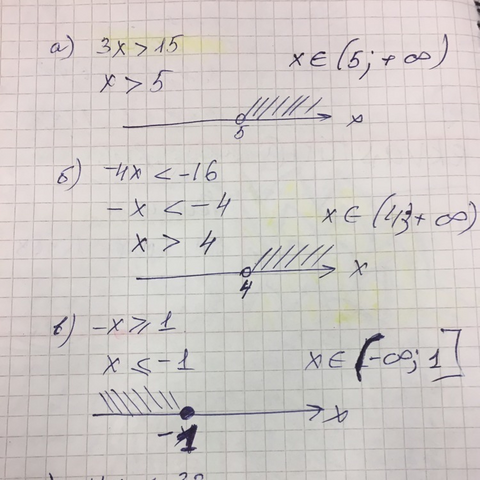 а) 3x > 15 x ∈ (5; +∞)
x > 5
5 x
б) -4x < -16
-x < -4 x ∈ (4; +∞)
x > 4
4 x
в) -x ⩾ 1
x ⩽ -1 x ∈ (-∞; 1]
-1 x